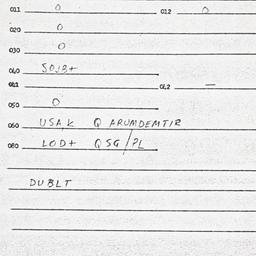 011 0 012 0
020 0
030 0
040
041 042 —
050 0
060 USAK Q
080 LOD+ QSG/PL
DUBLT